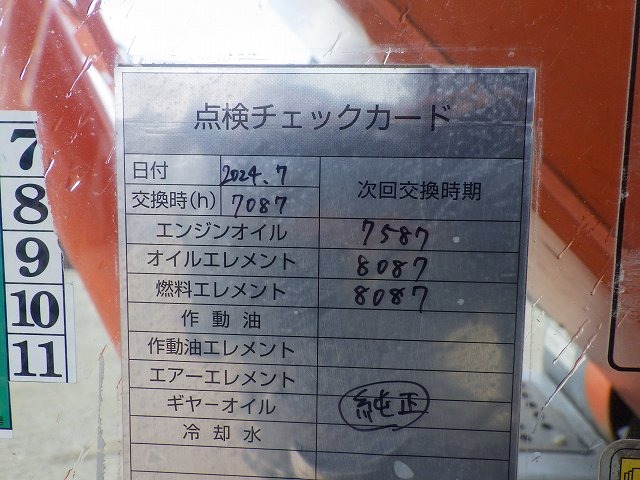 点検チェックカード
日付 2024.7
交換時(h) 7087 次回交換時期
エンジンオイル 7587
オイルエレメント 8087
燃料エレメント 8087
作動油
作動油エレメント
エアーエレメント
ギヤーオイル 純正
冷却水
7
8
9
10
11